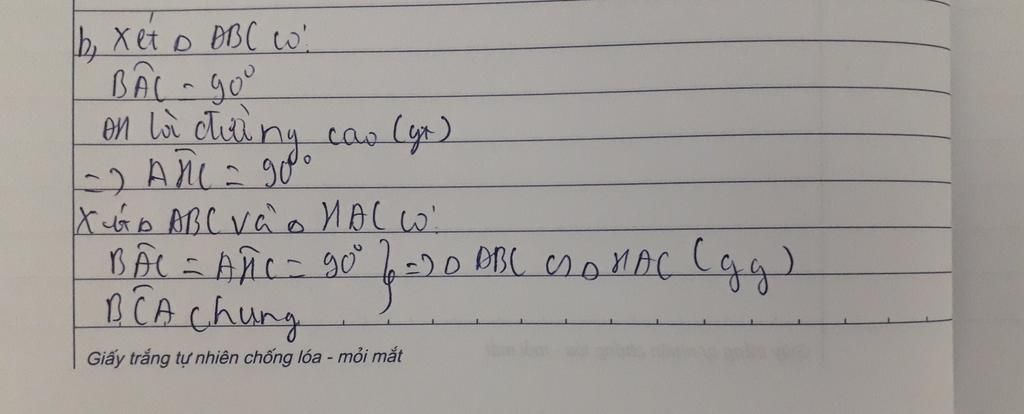 b, Xét Δ ABC có:
BÂC = 90°
AH là đường cao (gt)
=> AĤC = 90°
Xét Δ ABC và Δ HAC có:
BÂC = AĤC = 90° } => Δ ABC ∽ Δ HAC (gg)
BĈA chung
Giấy trắng tự nhiên chống lóa - mỏi mắt